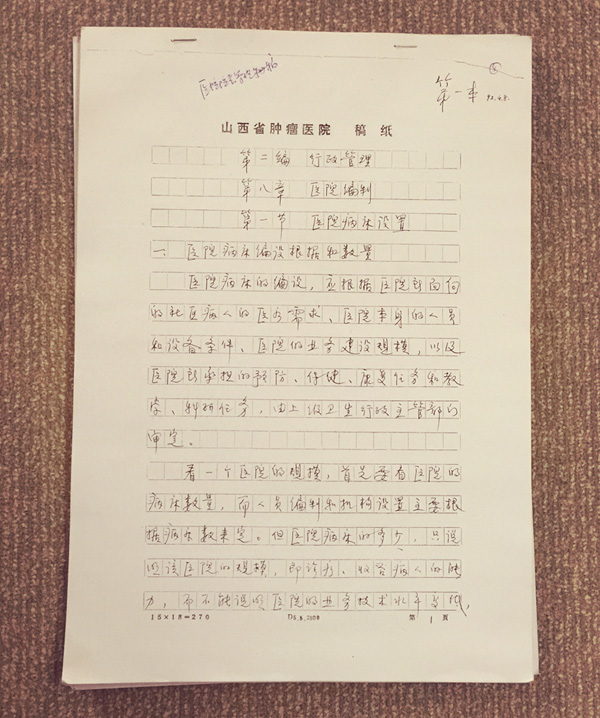 医院管理
第一本 92.4.8.
山西省肿瘤医院 稿纸
第二编 行政管理
第八章 医院编制
第一节 医院病床设置
一、医院病床编设根据和数量
医院病床的编设，应根据医院所面向
的社区病人的医疗需求、医院本身的人员
和设备条件、医院的业务建设规模，以及
医院所承担的预防、保健、康复任务和教
学、科研任务，由上级卫生行政主管部门
审定。
看一个医院的规模，首先要看医院的
病床数量，而人员编制和机构设置主要根
据病床数来定。但医院病床的多少，只说
明该医院的规模，即诊疗、收容病人的能
力，而不能说明医院的业务技术水平高低，
15×18=270
第 1 页